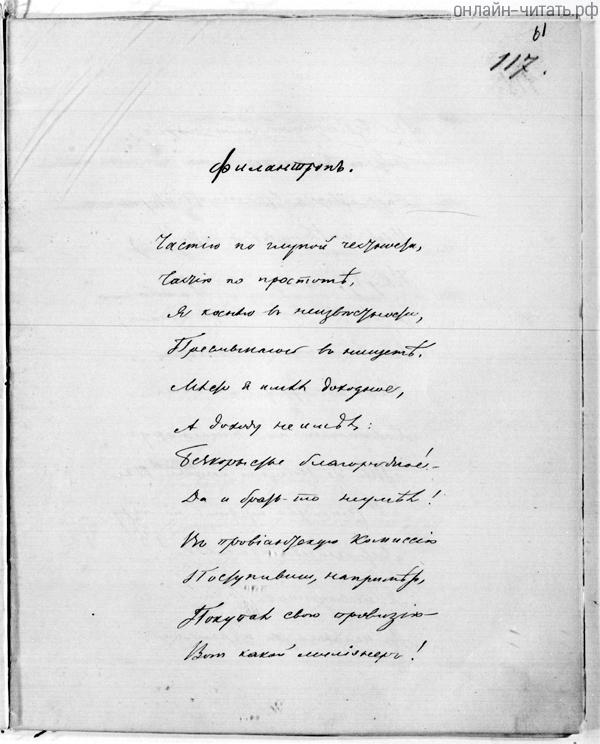 онлайн-читать.рф
61
117.
Филантропъ.
Частію по глупой честности,
Частію по простотѣ,
Я коснѣю въ неизвѣстности,
Пресмыкаюсь въ нищетѣ.
Мѣсто я имѣлъ доходное,
А доходу не имѣлъ:
Безкорыстье благородное! —
Да и брать-то не умѣлъ!
Въ провіантскую коммиссію
Поступивши, напримѣръ,
Покупалъ свою провизію —
Вотъ какой миліонеръ!